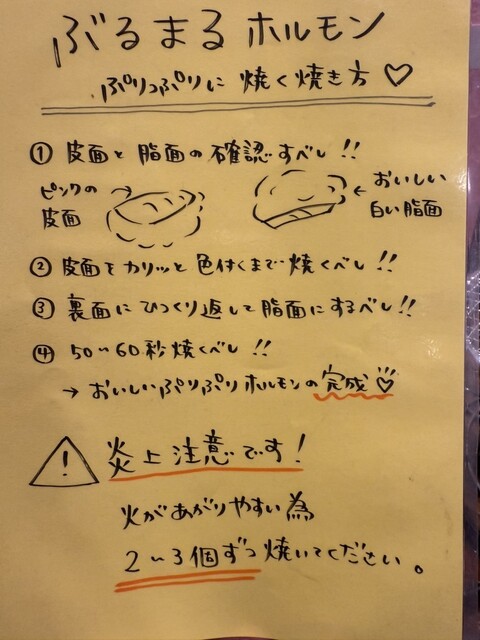 ぶるまるホルモン
ぷりっぷりに 焼く焼き方♡
① 皮面と脂面の確認すべし!!
ピンクの
皮面
おいしい
白い脂面
② 皮面をカリッと色付くまで焼くべし!!
③ 裏面にひっくり返して脂面にするべし!!
④ 50〜60秒焼くべし!!
→ おいしいぷりぷりホルモンの完成♡
! 炎上注意です!
火があがりやすい為
2〜3個ずつ焼いてください。